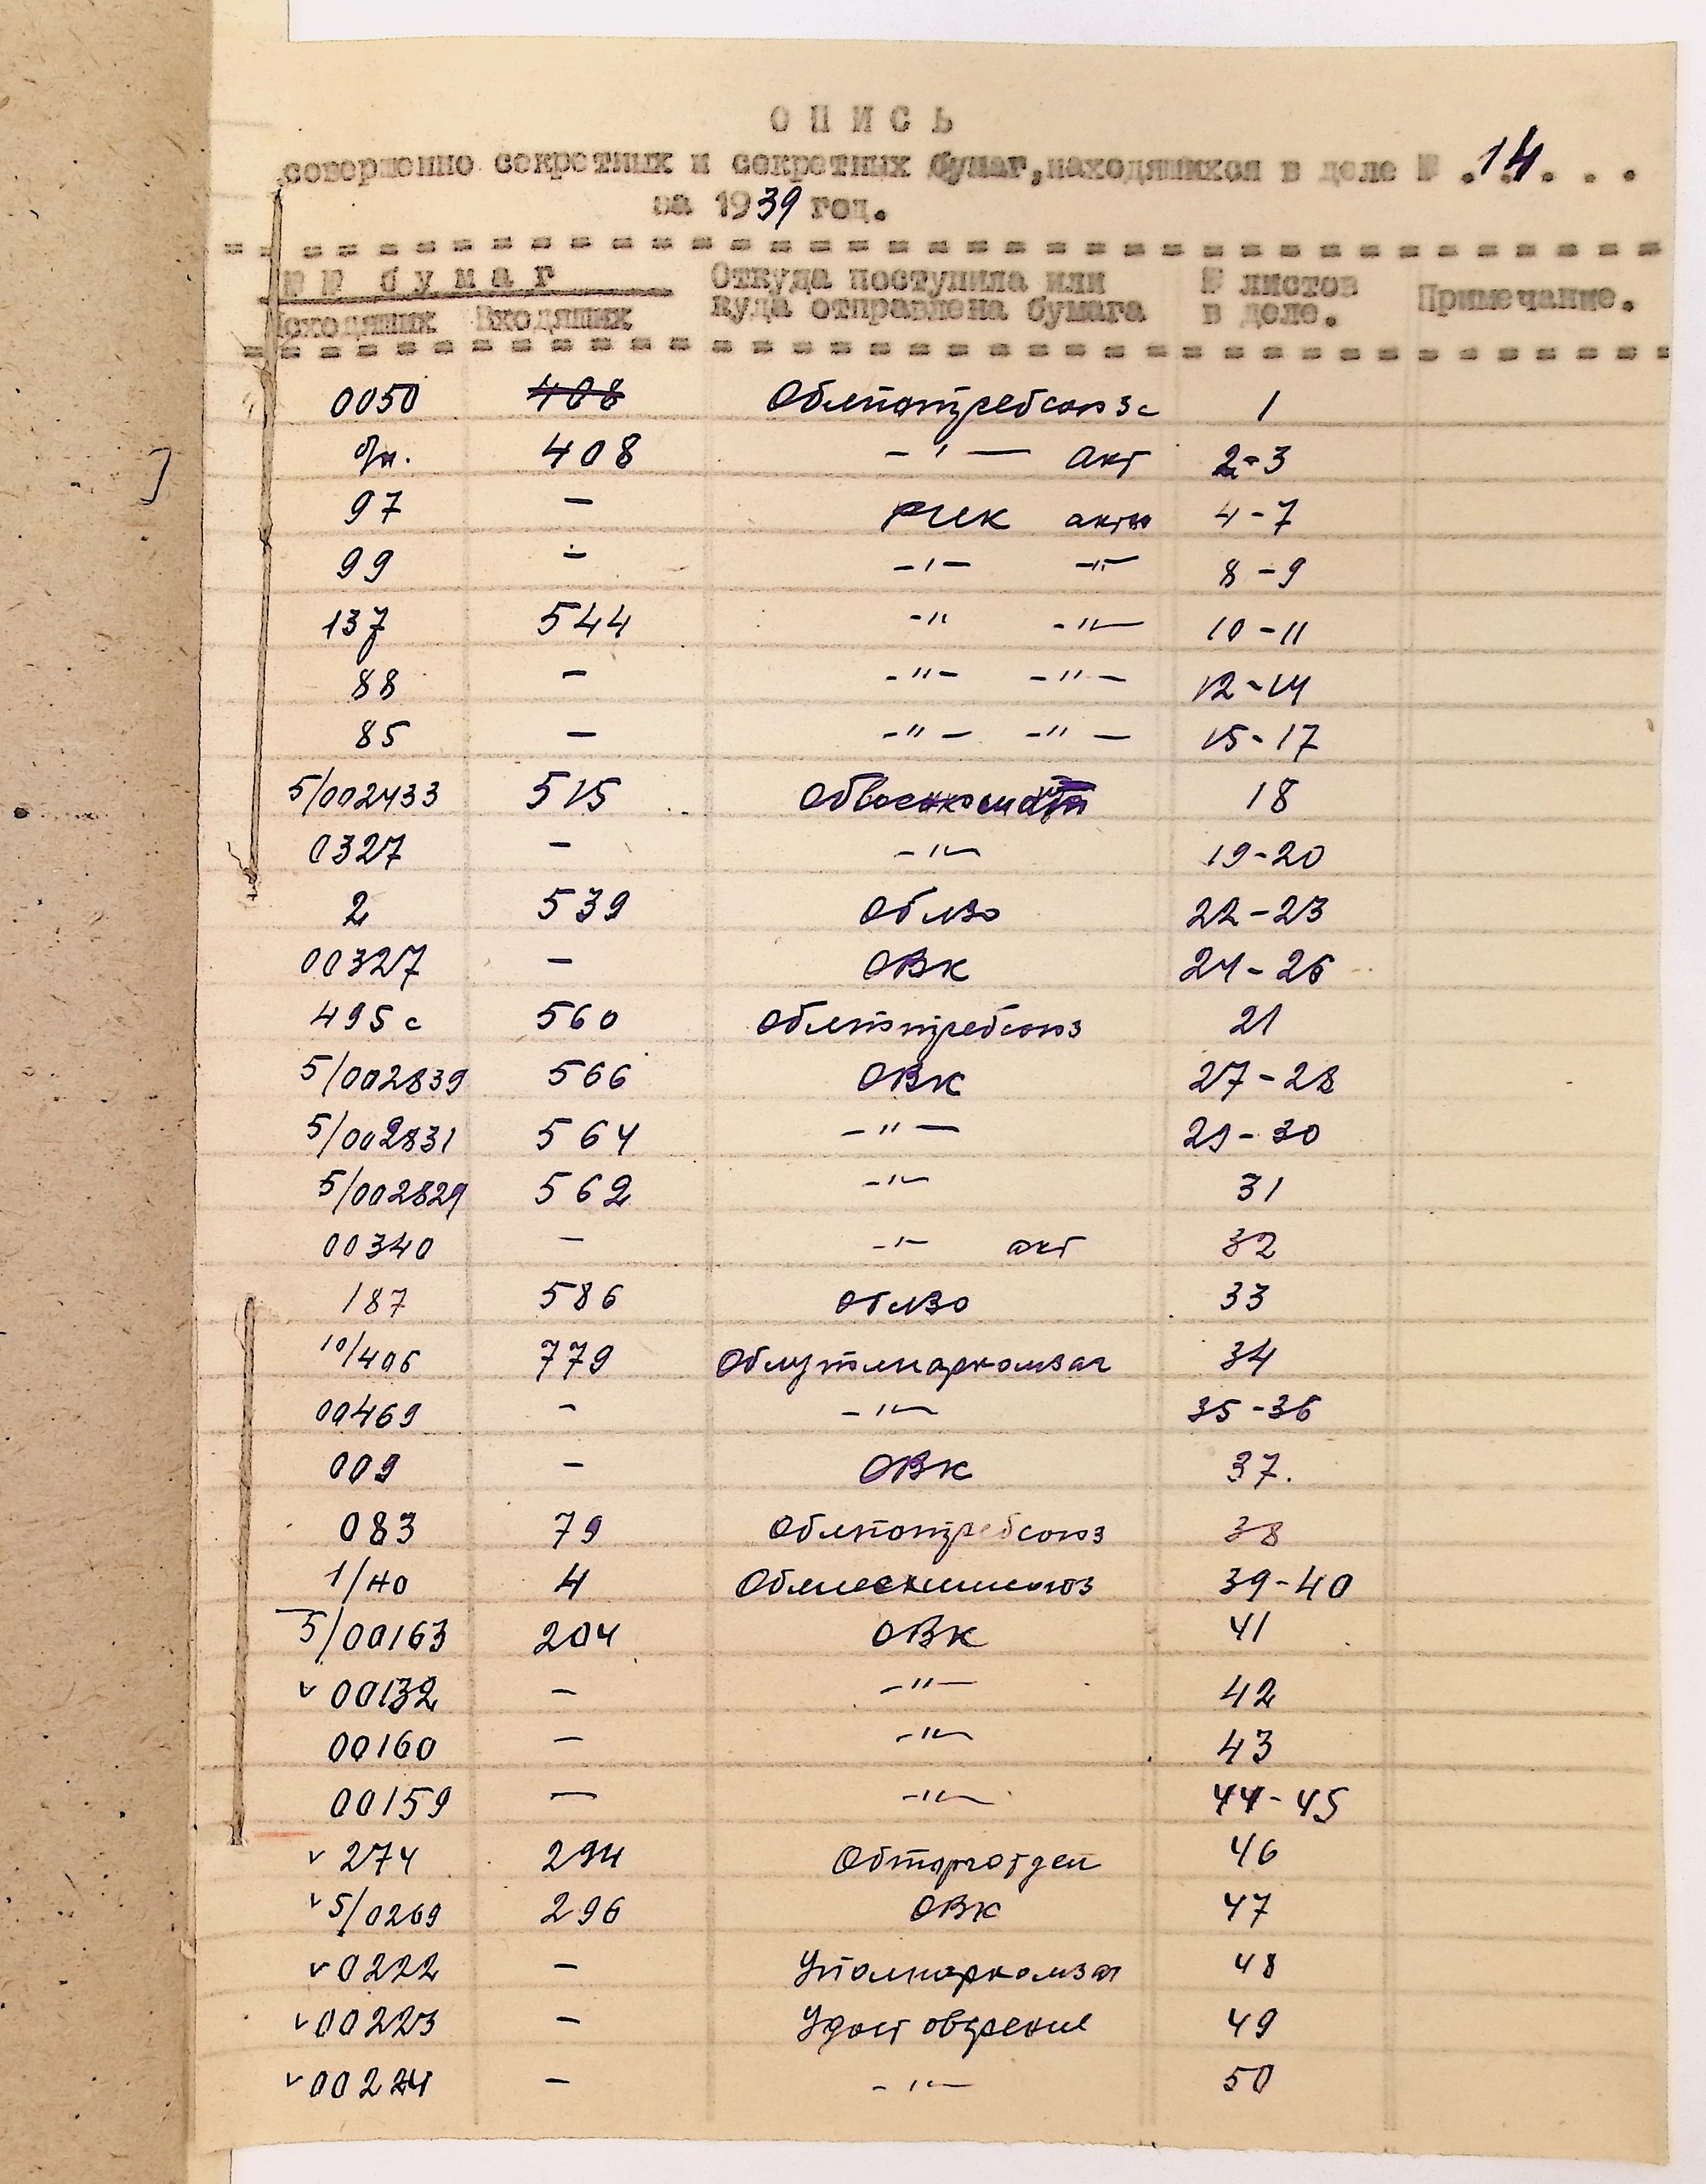 О П И С Ь
совершенно секретных и секретных бумаг, находящихся в деле № .14. . .
за 1939 год.
№ № б у м а г Откуда поступила или № листов Примечание.
Исходящих Входящих куда отправлена бумага в деле.
0050 408 Облпотребсоюз 1
б/н. 408 -"- акт 2-3
97 - РИК акты 4-7
99 - -"- -"- 8-9
137 544 -"- -"- 10-11
88 - -"- -"- 12-14
85 - -"- -"- 15-17
5/002433 515 Обвоенкомат 18
0327 - -"- 19-20
2 539 ОблЗО 22-23
00327 - ОВК 24-26
495с 560 Облпотребсоюз 21
5/002839 566 ОВК 27-28
5/002831 564 -"- 29-30
5/002829 562 -"- 31
00340 - -"- акт 32
187 586 ОблЗО 33
10/406 779 34
00469 - -"- 35-36
009 - ОВК 37.
083 79 Облпотребсоюз 38
1/40 4 39-40
5/00163 204 ОВК 41
v 00132 - -"- 42
00160 - -"- 43
00159 - -"- 44-45
v 274 294 Обторготдел 46
v 5/0269 296 ОВК 47
v 0222 - Уполнаркомзаг 48
v 00223 - 49
v 00224 - -"- 50